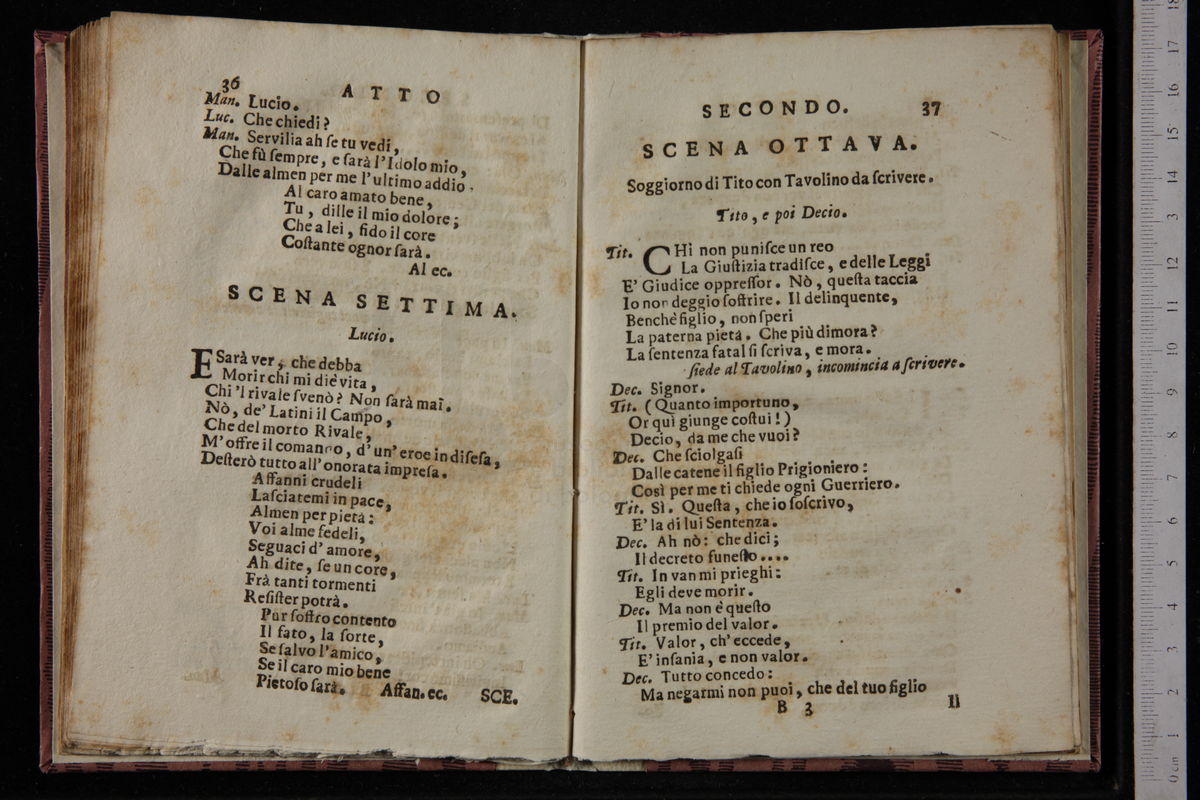 36
ATTO
Man. Lucio.
Luc. Che chiedi?
Man. Servilia ah ſe tu vedi,
Che fù ſempre, e ſarà l'Idolo mio,
Dalle almen per me l'ultimo addio.
Al caro amato bene,
Tu, dille il mio dolore;
Che a lei, fido il core
Coſtante ognor ſarà.
Al ec.
SCENA SETTIMA.
Lucio.
E Sarà ver, che debba
Morir chi mi diè vita,
Chi 'l rivale ſvenò? Non ſarà mai.
Nò, de' Latini il Campo,
Che del morto Rivale,
M'offre il comando, d'un'eroe in difeſa,
Deſterò tutto all'onorata impreſa.
Affanni crudeli
Laſciatemi in pace,
Almen per pietà:
Voi alme fedeli,
Seguaci d'amore,
Ah dite, ſe un core,
Frà tanti tormenti
Reſiſter potrà.
Pur ſoffro contento
Il fato, la ſorte,
Se ſalvo l'amico,
Se il caro mio bene
Pietoſo ſarà. Affan. ec. SCE.
SECONDO. 37
SCENA OTTAVA.
Soggiorno di Tito con Tavolino da ſcrivere.
Tito, e poi Decio.
Tit. CHi non puniſce un reo
La Giuſtizia tradiſce, e delle Leggi
E' Giudice oppreſſor. Nò, queſta taccia
Io non deggio ſoffrire. Il delinquente,
Benchè figlio, non ſperi
La paterna pietà. Che più dimora?
La ſentenza fatal ſi ſcriva, e mora.
ſiede al Tavolino, incomincia a ſcrivere.
Dec. Signor.
Tit. (Quanto importuno,
Or quì giunge coſtui!)
Decio, da me che vuoi?
Dec. Che ſciolgaſi
Dalle catene il figlio Prigioniero:
Così per me ti chiede ogni Guerriero.
Tit. Sì. Queſta, che io ſoſcrivo,
E' la di lui Sentenza.
Dec. Ah nò: che dici;
Il decreto funeſto....
Tit. In van mi prieghi:
Egli deve morir.
Dec. Ma non è queſto
Il premio del valor.
Tit. Valor, ch'eccede,
E' inſania, e non valor.
Dec. Tutto concedo:
Ma negarmi non puoi, che del tuo figlio
B 3 Il